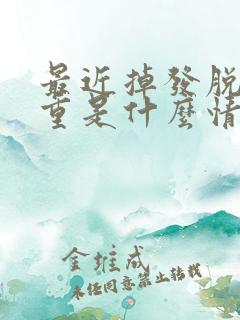 最近掉發脫
重是什麼情
金雄成
未经同意禁止转载